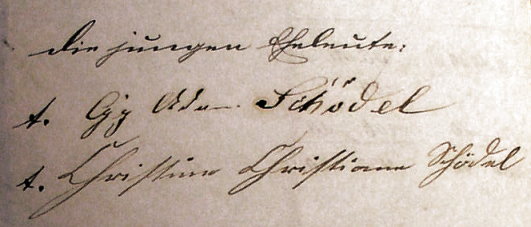 die jungen Eheleute:
t. Gg Adam Schödel
t. Christine Christiane Schödel